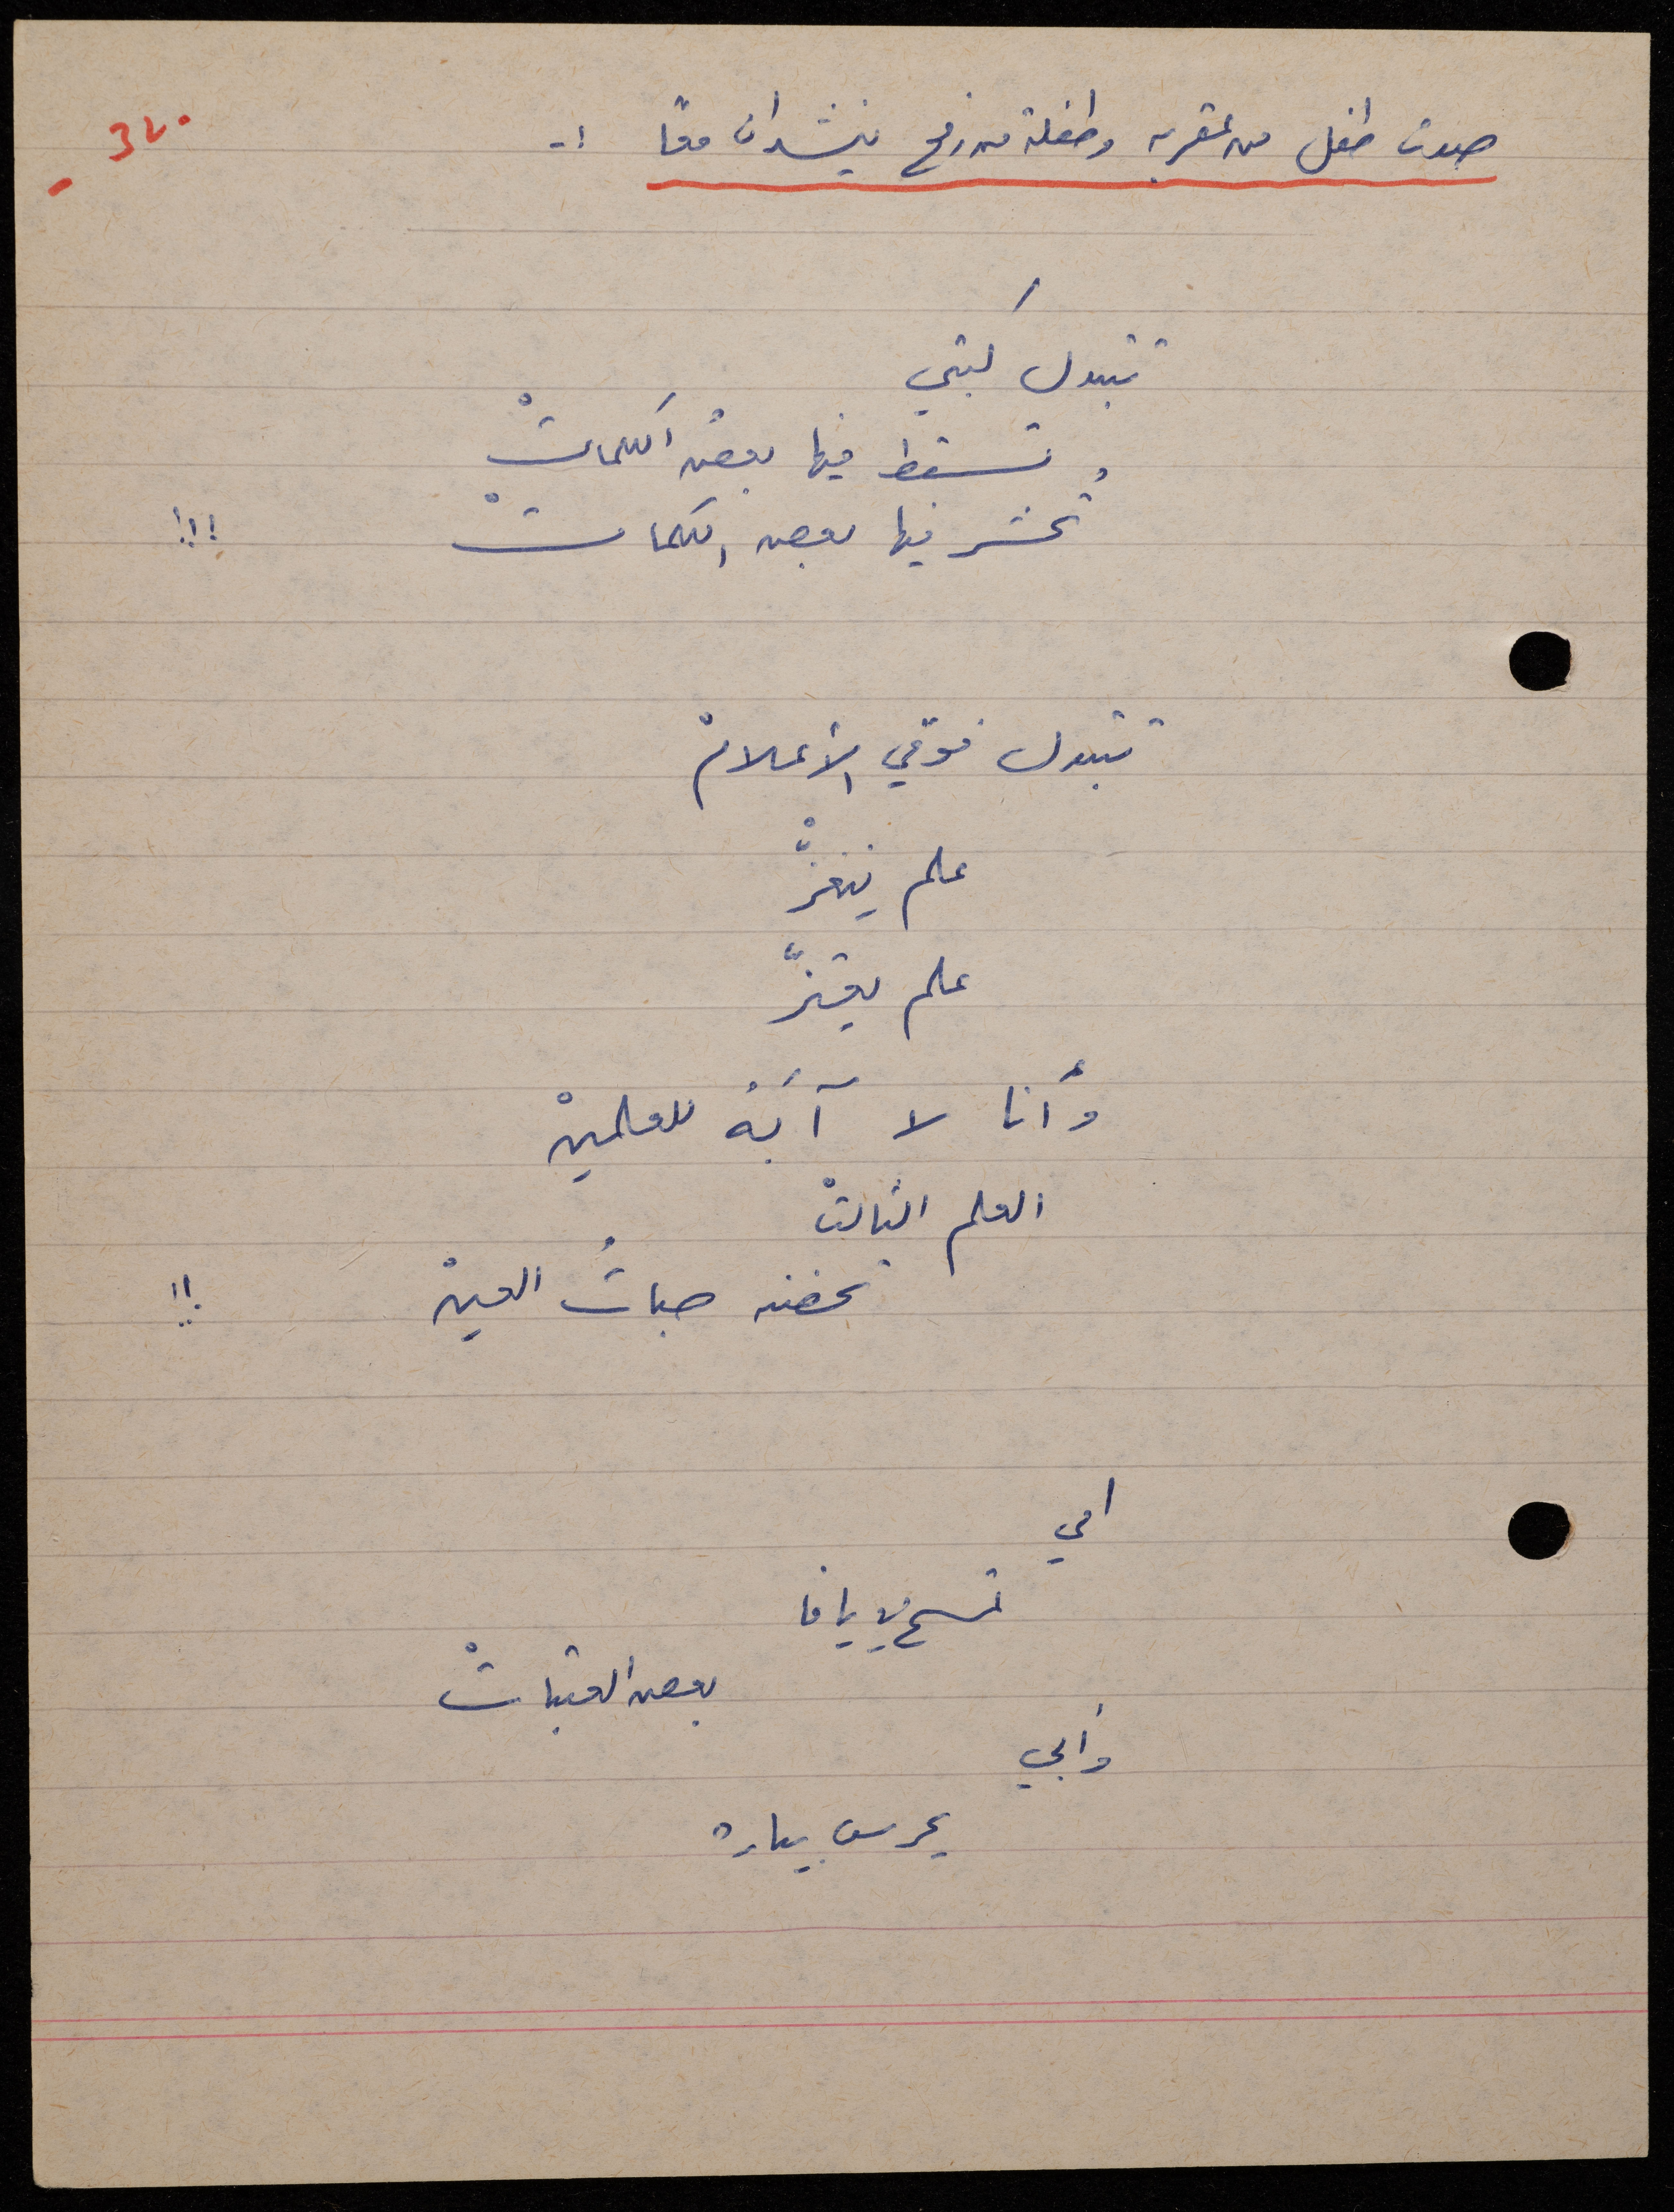 صوت طفل من عقربه وطفلة من رفح ينشدان معًا :-
٣٢٠
تتبدل كَتبي
تسقط فيها بعض الكلماتْ
وتُحشر فيها بعض الكلماتْ !!!
تتبدل فوقي الأعلامْ
علم ينغزّْ
علم يهتزّ
وأنا لا آبَهُ للعلمينْ
العلم الثالثْ
تحضنه حباتُ العينْ !!
امي
تمسح في يافا
بعض العتباتْ
وأبي
يحرس بيارة